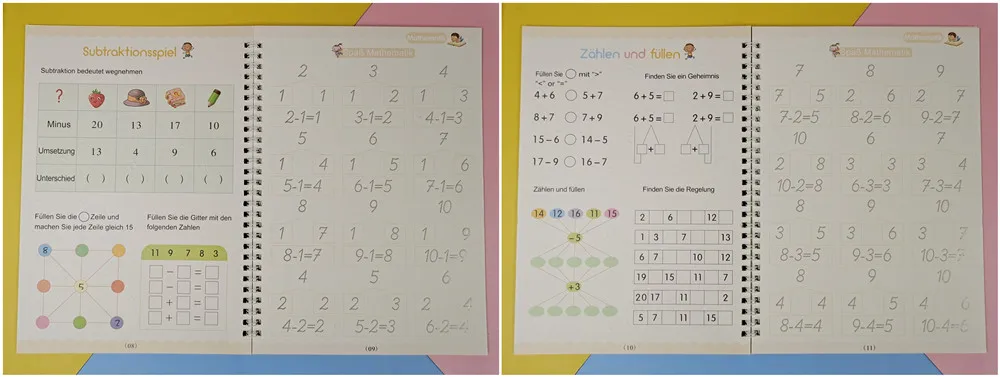 Subtraktionsspiel
Subtraktion bedeutet wegnehmen
?
Minus 20 13 17 10
Umsetzung 13 4 9 6
Unterschied ( ) ( ) ( ) ( )
Füllen Sie die ○ Zeile und
machen Sie jede Zeile gleich 15
8
5
7
Füllen Sie die Gitter mit den
folgenden Zahlen
11 9 7 8 3
□ − □ = □
□ − □ = □
□ + □ = □
□ + □ = □
(08)
Spaß Mathematik
2 3 4
1 1 1 2 1 3
2-1=1 3-1=2 4-1=3
5 6 7
1 4 1 5 1 6
5-1=4 6-1=5 7-1=6
8 9 10
1 7 1 8 1 9
8-1=7 9-1=8 10-1=9
4 5 6
2 2 2 3 2 4
4-2=2 5-2=3 6-2=4
(09)
Zählen und füllen
Füllen Sie ○ mit ">"
"<" or "="
4+6 ○ 5+7
8+7 ○ 7+9
15−6 ○ 14−5
17−9 ○ 16−7
Finden Sie ein Geheimnis
6+5=□ 2+9=□
6+5=□ 2+9=□
□+□ □+□
Zählen und füllen
14 12 16 11 15
−5
+3
Finden Sie die Regelung
2 6 12
1 3 7 13
6 7 10 12
19 15 11 7
20 17 11 2
5 7 11 15
(10)
Spaß Mathematik
7 8 9
7 5 2 6 2 7
7-2=5 8-2=6 9-2=7
10 6 7
2 8 3 3 3 4
10-2=8 6-3=3 7-3=4
8 9 10
3 5 3 6 3 7
8-3=5 9-3=6 10-3=7
8 9 10
4 4 4 5 4 6
8-4=4 9-4=5 10-4=6
(11)